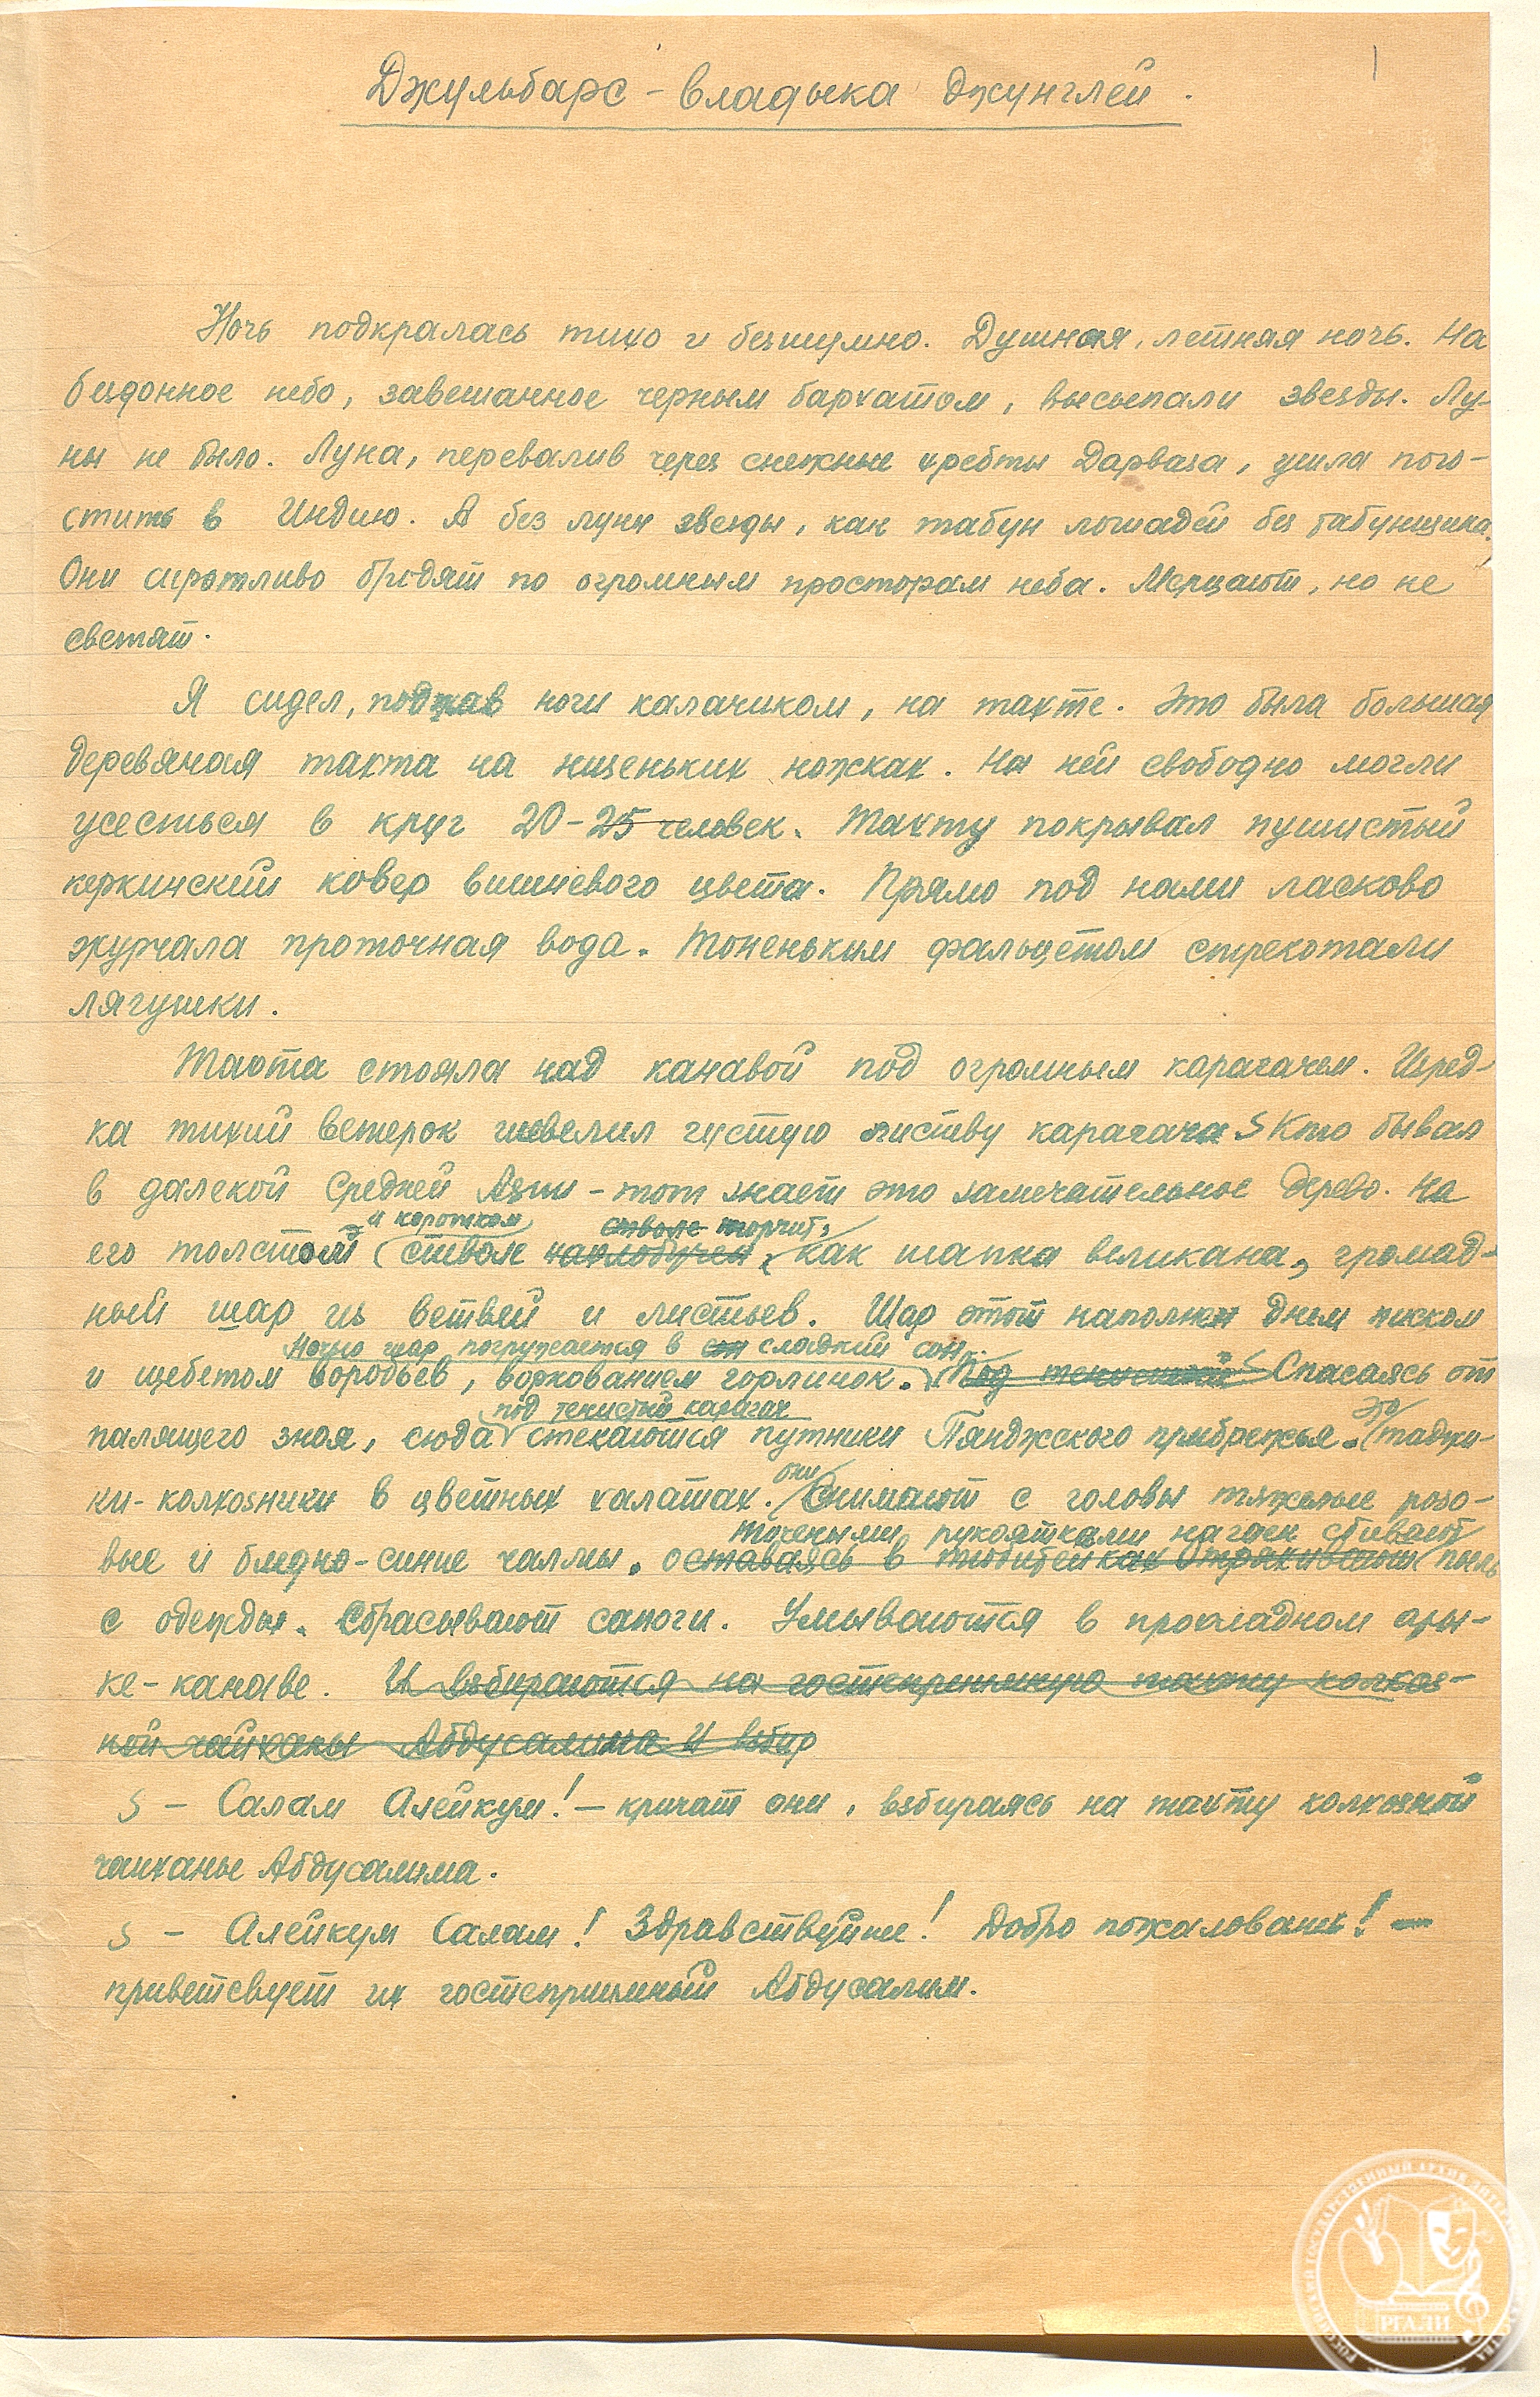 1
Джульбарс - владыка джунглей.
Ночь подкралась тихо и безшумно. Душная, летняя ночь. На
бездонное небо, завешанное черным бархатом, высыпали звезды. Лу-
ны не было. Луна, перевалив через снежные хребты Дарваза, ушла пого-
стить в Индию. А без луны звезды, как табун лошадей без табунщика.
Они сиротливо бродят по огромным просторам неба. Мерцают, но не
светят.
Я сидел, поджав ноги калачиком, на тахте. Это была большая
деревяная тахта на низеньких ножках. На ней свободно могли
усесться в круг 20-25 человек. Тахту покрывал пушистый
керкинский ковер вишневого цвета. Прямо под нами ласково
журчала проточная вода. Тоненьким фальцетом стрекотали
лягушки.
Тахта стояла над канавой под огромным карагачем. Изред-
ка тихий ветерок шевелил густую листву карагача. Кто бывал
в далекой Средней Азии - тот знает это замечательное дерево. На
и коротком стволе торчит,
его толстом стволе нахлобучен, как шапка великана, громад-
ный шар из ветвей и листьев. Шар этот наполнен днем писком
Ночью шар погружается в сон сладкий сон.
и щебетом воробьев, воркованием горлинок. Под Спасаясь от
под тенистый карагач Это
палящего зноя, сюда стекаются путники Пянджского прибрежья. таджи-
они
ки-колхозники в цветных халатах. Снимают с головы тяжелые розо-
точеными рукоятками нагаек сбивают
вые и бледно-синие чалмы. оставаясь в тюбитейках отряхивают пыль
с одежды. Сбрасывают сапоги. Умываются в прохладном ары-
ке-канаве. И взбираются на гостеприимную тахту колхоз-
ной чайханы Абдусалима И взбир
- Салам Алейкум! - кричат они, взбираясь на тахту колхозной
чайханы Абдусалима.
- Алейкум Салам! Здравствуйте! Добро пожаловать! -
приветсвует их гостеприимный Абдусалим.
РОССИЙСКИЙ ГОСУДАРСТВЕННЫЙ АРХИВ ЛИТЕРАТУРЫ И ИСКУССТВА
РГАЛИ